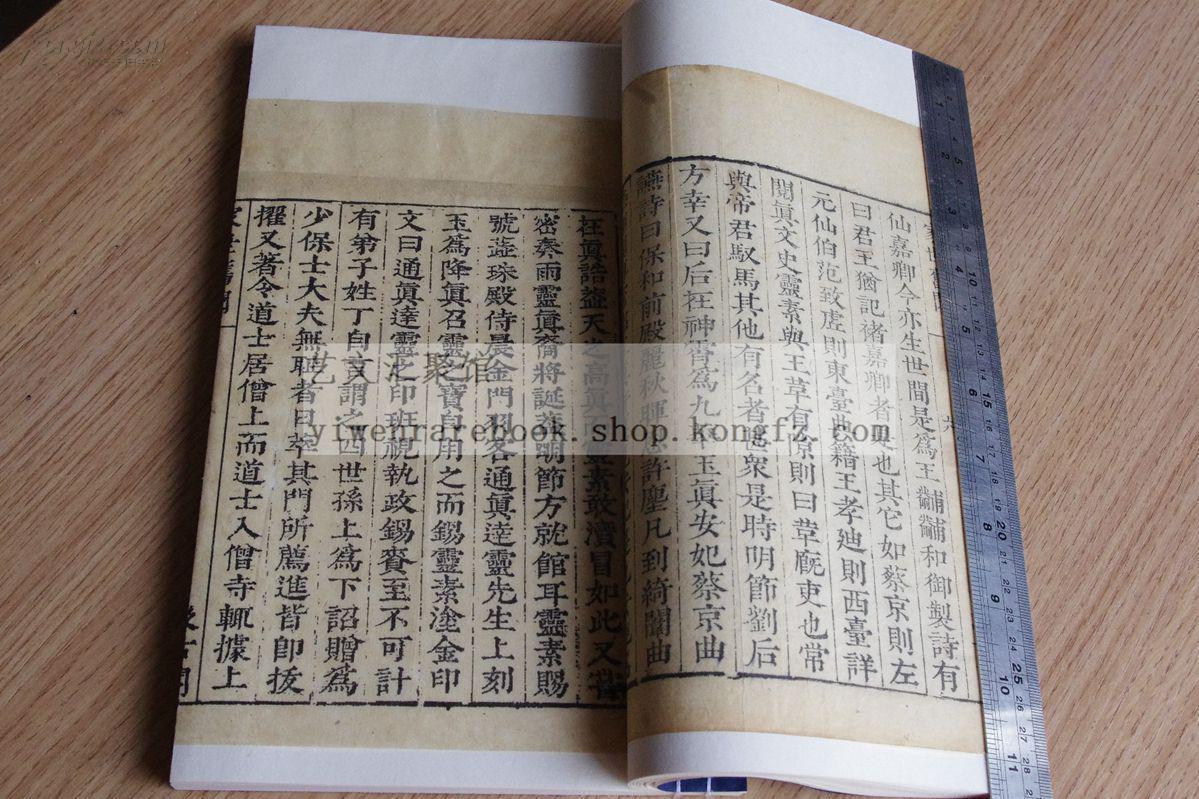 仙嘉卿今亦生世間是爲王黼黼和御製詩有
曰君王猶記禇嘉卿者是也其它如蔡京則左
元仙伯范致虚則東臺典籍王孝廸則西臺詳
閱眞文史靈素與王草有京則曰草厩吏也常
與帝君馭馬其他有名者甚衆是時明節劉后
方幸又曰后在神霄爲九華玉眞安妃蔡京曲
讌詩曰保和前殿麗秋暉恩許塵凡到綺闈曲
在眞誥蓋天之高眞靈素敢瀆冒如此又
密奏雨靈眞裔將誕葢明節方就館耳靈素賜
號蘂珠殿侍晨金門羽客通眞達靈先生上刻
玉爲降眞召靈之寶自用之而錫靈素塗金印
文曰通眞達靈之印班視執政錫賚至不可計
有弟子姓丁自言謂之四世孫上爲下詔贈爲
少保士大夫無耻者日萃其門所薦進皆卽拔
擢又著令道士居僧上而道士入僧寺輒據上
家世舊聞
艺文汇聚馆
yiwenrarebook.shop.kongfz.com